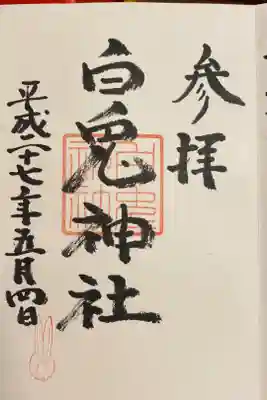 参拝
白兎神社
平成二十七年五月四日